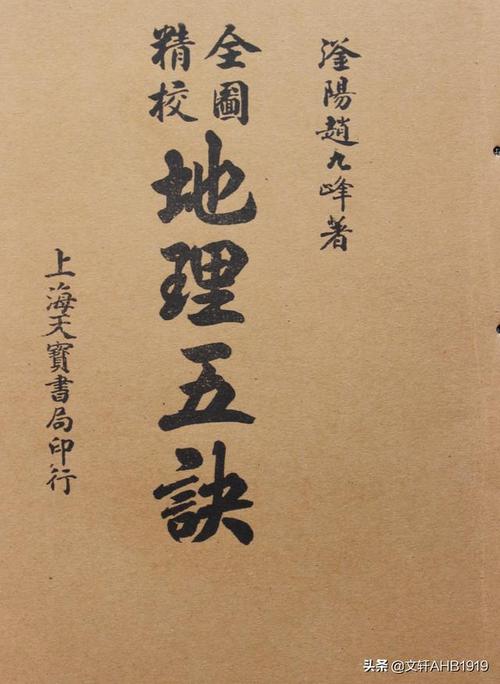 滏陽趙九峰著
全圖
精校
地理五訣
上海天寶書局印行
头条 @文轩AHB1919